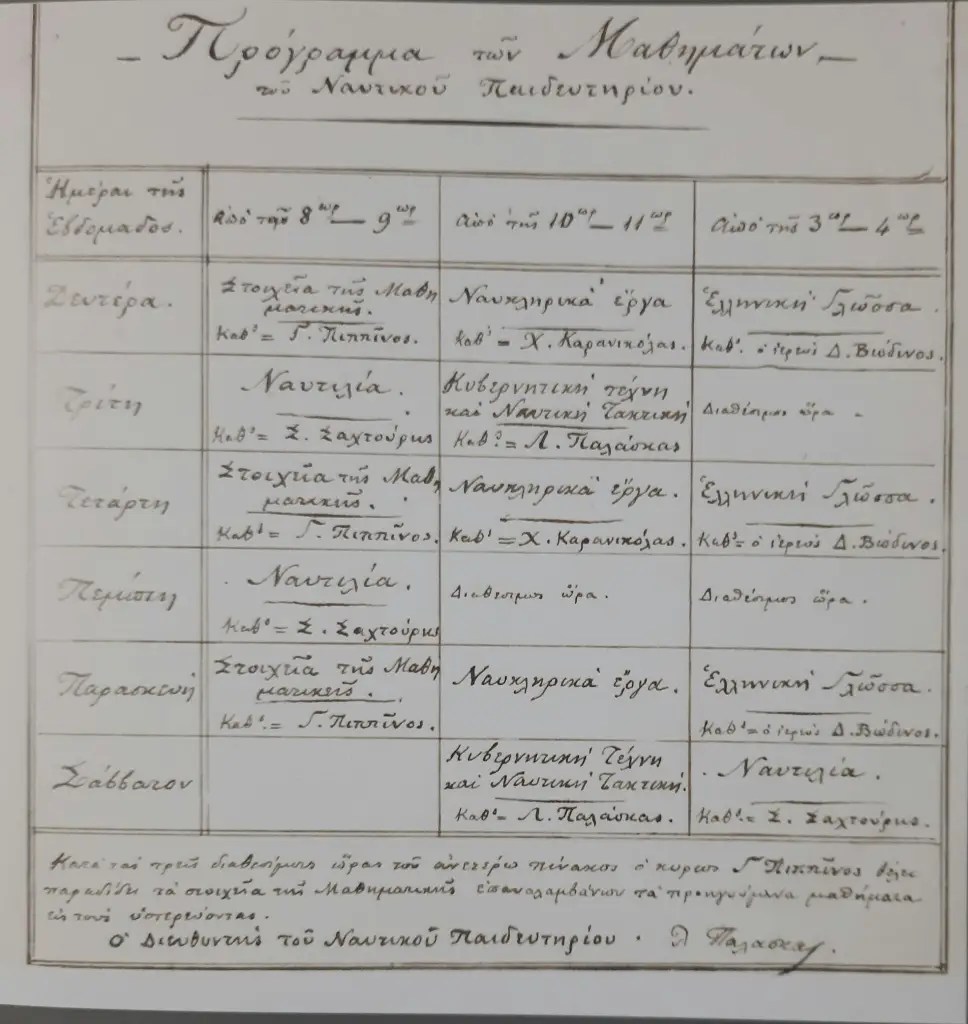 — Πρόγραμμα τῶν Μαθημάτων —
τοῦ Ναυτικοῦ Παιδευτηρίου.
Ἡμέραι τῆς Ἑβδομαδος.
Ἀπὸ τῆς 8 ωρ — 9 ωρ
Ἀπὸ τῆς 10 ωρ — 11 ωρ
Ἀπὸ τῆς 3 ωρ — 4 ωρ
Δευτέρα.
Στοιχεῖα τῆς Μαθη
ματικῆς.
Καθ^ς = Γ. Πιππῖνος.
Ναυκληρικὰ ἔργα
Καθ^ς = Χ. Καρανικόλας.
Ἑλληνικὴ Γλῶσσα.
Καθ. ὁ ἱερεὺς Δ. Βιώδινος.
Τρίτη
Ναυτιλία.
Καθ^ς = Σ. Σαχτούρης
Κυβερνητικὴ τέχνη
καὶ Ναυτικὴ Τακτικὴ
Καθ^ς = Λ. Παλάσκας
Διαθέσιμος ὥρα.
Τετάρτη
Στοιχεῖα τῆς Μαθη
ματικῆς.
Καθ^ς = Γ. Πιππῖνος.
Ναυκληρικὰ ἔργα.
Καθ^ς = Χ. Καρανικόλας.
Ἑλληνικὴ Γλῶσσα.
Καθ^ς = ὁ ἱερεὺς Δ. Βιώδινος.
Πέμπτη
Ναυτιλία.
Καθ^ς = Σ. Σαχτούρης
Διαθέσιμος ὥρα.
Διαθέσιμος ὥρα.
Παρασκευὴ
Στοιχεῖα τῆς Μαθη
ματικῆς.
Καθ^ς = Γ. Πιππῖνος.
Ναυκληρικὰ ἔργα.
Ἑλληνικὴ Γλῶσσα.
Καθ^ς = ὁ ἱερεὺς Δ. Βιώδινος.
Σάββατον
Κυβερνητικὴ Τέχνη
καὶ Ναυτικὴ Τακτική.
Καθ^ς = Λ. Παλάσκας.
Ναυτιλία.
Καθ^ς = Σ. Σαχτούρης.
Κατὰ τὰς τρεῖς διαθεσίμους ὥρας τοῦ ἀνωτέρω πίνακος ὁ κύριος Γ Πιππῖνος θέλει
παραδίδει τὰ στοιχεῖα τῆς Μαθηματικῆς ἐπαναλαμβάνων τὰ προηγούμενα μαθήματα
εἰς τοὺς ὑστεροῦντας.
Ὁ Διευθυντὴς τοῦ Ναυτικοῦ Παιδευτηρίου. Λ Παλάσκας.